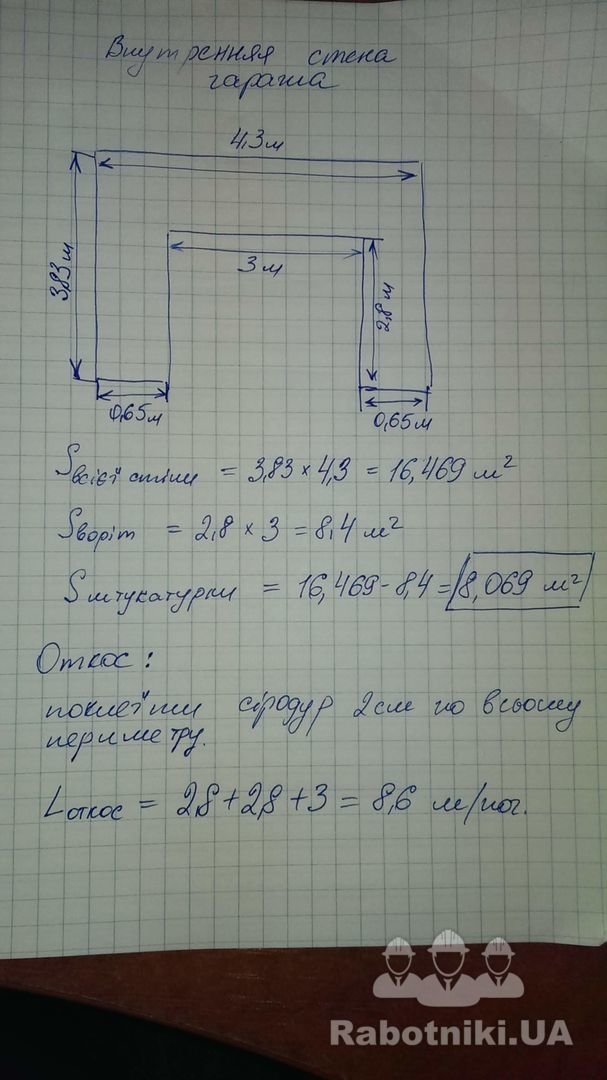 Внутренняя стена
гаража
4,3м
3,83 м
3 м
2,8 м
0,65м
0,65м
Sвсієї стіни = 3,83 × 4,3 = 16,469 м²
Sворіт = 2,8 × 3 = 8,4 м²
Sштукатурки = 16,469 - 8,4 = 8,069 м²
Откос:
поклеїти сіродур 2см по всьому
периметру.
Lоткос = 2,8 + 2,8 + 3 = 8,6 м/пог.
Rabotniki.UA